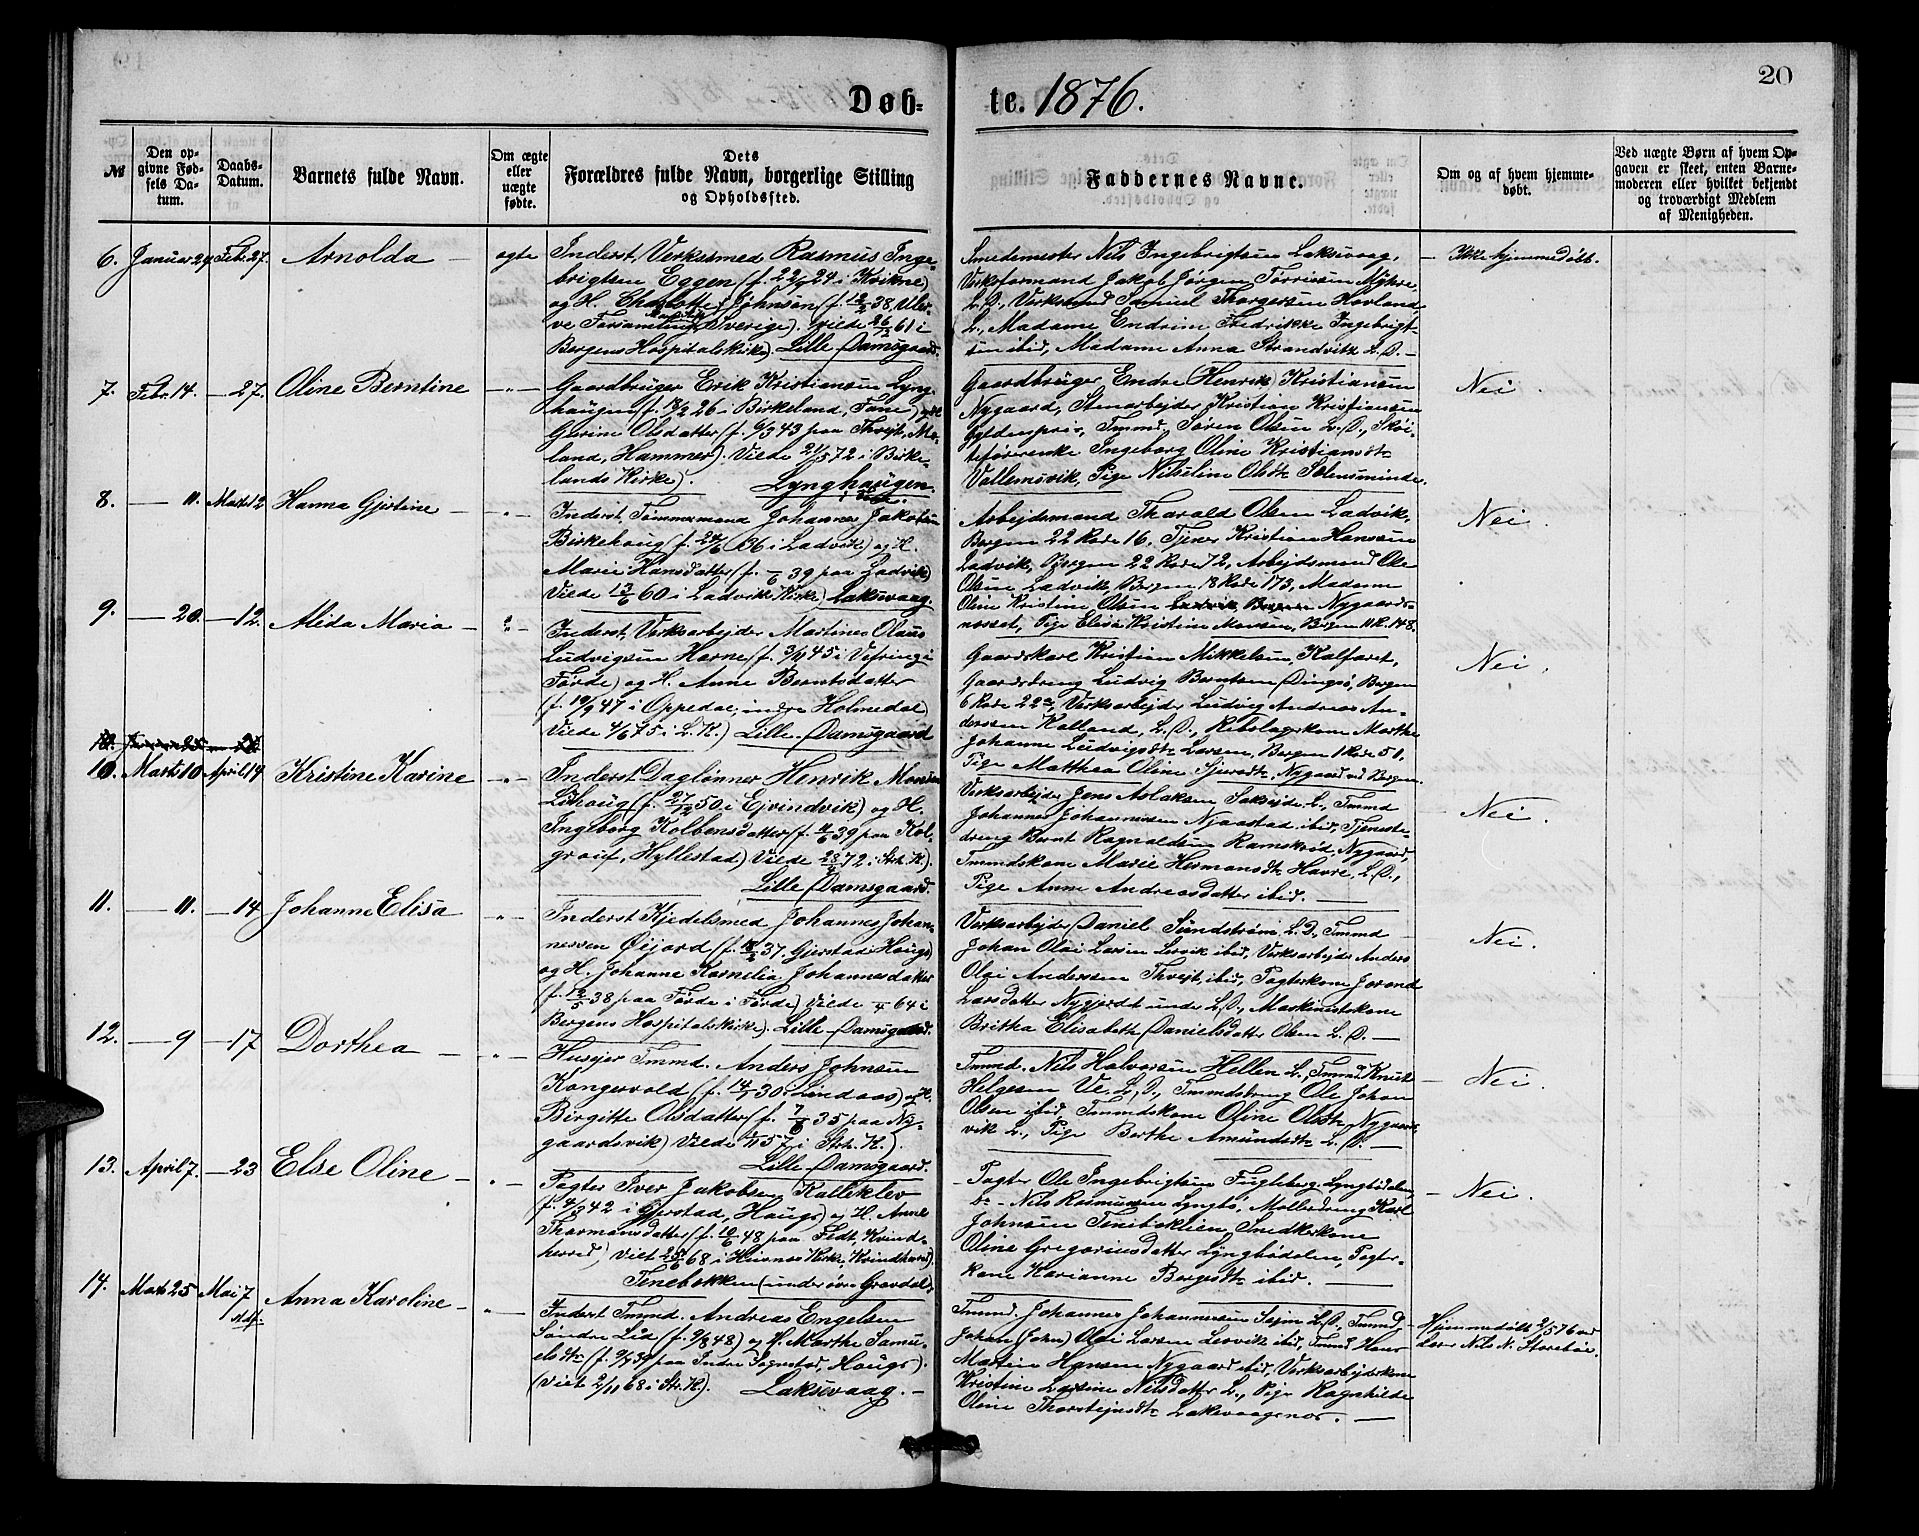 20
Døb-
te. 1876.
№
Den op-
givne Fød-
sels Da-
tum.
Daabs-
Datum.
Barnets fulde Navn.
Om ægte
eller
uægte
fødte.
Dets
Forældres fulde Navn, borgerlige Stilling
og Opholdssted.
Faddernes Navne.
Om og af hvem hjemme-
døbt.
Ved uægte Børn af hvem Op-
gaven er skeet, enten Barne-
moderen eller hvilket bekjendt
og troværdigt Medlem
af Menigheden.
6. Januar 29 Febr. 27. Arnolda — ægte
Inderst, Verkssmed Rasmus Inge-
brigtsen Eggen (f. 22/ 24 i Kvikne)
og H. Charlotte Johnsen (f. 38,
Forsamling Sverige). Viede 26/12 61 i
Bergens Hospitalskirke). Lille Damsgaard.
Smedemester Nils Ingebrigtsen Laksevaag,
Verksformand Jakob Jørgen Tørrisen Myhre,
L. D., Verksmd Samuel Thorgersen Hovland,
L., Madame Endrine Fredrikke Ingebrigt-
sen ibid, Madame Anna Strandvik L. D. —
— Ikke hjemmedøbt.
7. Febr. 14. — 27. Oline Berntine —"—
Gaardbruger Erik Kristiansen Lyng-
haugen (f. 13/2 26 i Birkeland, Fane) og H.
Gurine Olsdatter (f. 6/3 43 paa Thvejt, Mo-
land, Hammer). Viede 21/5 72 i Birke-
lands Kirke). Lynghaugen.
Gaardbruger Endre (Henrik) Kristiansen
Nygaard, Stenarbejder Kristian Kristiansen
Gyldenpris, Tmmd. Søren Olsen L. D., Skøi-
teførerenke Ingeborg Oline Kristiansdtr
Vallemsvik, Pige Nilseline Olsdtr Solensminde.
Nei.
8. — 11. Marts 12 Hanna Gjertine — —"—
Inderst, Tømmermand Johannes Jakobsen
Birkehaug (f. 24/6 36 i Ladvik) og H.
Marie Hansdatter (f. /6 39 paa Ladvik)
Viede 13/6 60 i Ladvik Kirke) Laksevaag.
Arbejdsmand Tharald Olsen Ladvik,
Bergen 22 Rode 16, Tjener Kristian Hanssen
Ladvik, Bergen 22 Rode 72, Arbejdsmand Ole
Olsen Ladvik, Bergen 18 Rode 173, Madame
Oline Kristine Olsen Nygaards-
nesset, Pige Elisa Kristine Monsen, Bergen 11 R. 148.
Nei.
9. — 20. — 12. Alida Maria — —"—
Inderst, Verksarbejder Martines Olaus
Ludvigsen Horne (f. 3/11 45 i Vefring i
Førde) og H. Anne Berntsdatter
(f. 19/9 47 i Oppedal, indre Holmedal)
Viede 4/6 75 i L. K.) Lille Damsgaard
Gaardskarl Kristian Mikkelsen, Kalfaret,
Gaardsdreng Ludvig Berntsen Dingsø, Bergen
6 Rode 22a, Verksarbejder Ludvig Andreas An-
derssen Kolland, L. D., Rebslagerkone Marthe
Johanne Ludvigsdtr Larsen, Bergen 1 Rode 51,
Pige Matthea Oline Sjursdtr, Nygaard ved Bergen.
Nei.
10. Marts 10 April 14 Kristine Karine —"—
Inderst Daglønner Henrik Monsen
Lihaug (f. 27/ 50 i Ejvindvik) og H.
Ingeborg Kolbensdatter (f. 39 paa Kol-
grof, Hyllestad) Viede 28/ 72 i Strk. K).
Lille Damsgaard.
Verksarbejder Jens Aslaksen Saksejde L., Tmmd
Johannes Johannessen Njaastad ibid, Tjeneste-
dreng Bernt Ragnaldsen Ramskrid, Nygaard,
Tmmdskone Marie Hermansdtr Havre, L. D.,
Pige Anne Andreasdatter ibid. —
— Nei.
11. — 11. — 14 Johanne Elisa —"—
Inderst Kjedelsmed Johannes Johan-
nessen Øijord (f. 37. Gjerstad Hougs)
og H. Johanne Kornelia Johannesdatter
(f. 12/5 38 paa Førde i Førde) Viede 64 i
Bergens Hospitalskirke). Lille Damsgaard.
Verksarbejder Daniel Sundstrøm L. D., Tmmd
Johan Olai Larsen Lervik ibid, Verksarbejder Anders
Olai Andersen Thvejt ibid, Pagterkone Jorand
Larsdatter Nygjordet under L. D., Maskinistkone
Britha Elisabeth Danielsdatter Olsen L. D. —
Nei.
12. — 9 — 17 Dorthea — —"—
Husejer Tmmd. Anders Johnsen
Kongervold (f. 14/ 30. Lindaas) og H.
Birgitte Olsdatter (f. 7/6 35 paa Ny-
gaardsvik) Viede 57 i Strk. K.).
Lille Damsgaard.
Tmmd. Nils Halvorsen Hellen L., Tmmd. Knut
Helgesen Ve. L. D., Tmmdsdreng Ole Johan
Olsen ibid, Tmmdskone Oline Olsdtr Nygaards-
vik L., Pige Berthe Amundsdtr L. D. —
— Nei.
13. April 7. — 23 Else Oline — —"—
Pagter Iver Jakobsen Kalleklev
(f. 4/3 42 i Gjerstad, Haugs) og H. Anne
Thormonsdatter (f. 10/6 48 paa Fedt, Kvind-
herred) Viet 25/6 68 i Heirnes Kirke, Kvindherred).
Tenebekken (under øvre Gravdal.
— Pagter Ole Ingebrigtsen Fugleberg, Lyngbødalen,
do — Nils Rasmussen Lyngbø, Møllerdreng Karl
Johnsen Tenebeklien, Smedkerkone
Oline Gregoriusdatter Lyngbødalen, Pagter-
kone Karianne Borgesdtr ibid. —
— Nei.
14. Marts 25 Mai 7 Anna Karoline — —"—
Inderst Tmmd. Andreas Engelsen
Søndre Lid (f. 9/8 48) og H. Marthe Samu-
elsdtr (f. 9/4 39 paa Indre Sognstad, Hougs).
(Viet 2/11 68 i Strk. K). Laksevaag. —
Tmmd. Johannes Johannessen Sejm L. D., Tmmd
Johan (John) Olai Larsen Lervik ibid, Tmmd Hans
Martin Hansen Nygaard ibid, Verksarbejderkone
Kristine Larsine Nilsdatter L., Pige Ragnhilde
Oline Thorstejnsdtr Laksevaagsnes. —
— Hjemmedøbt 2/5 76 ved
Lærer Nils N. Storebø.